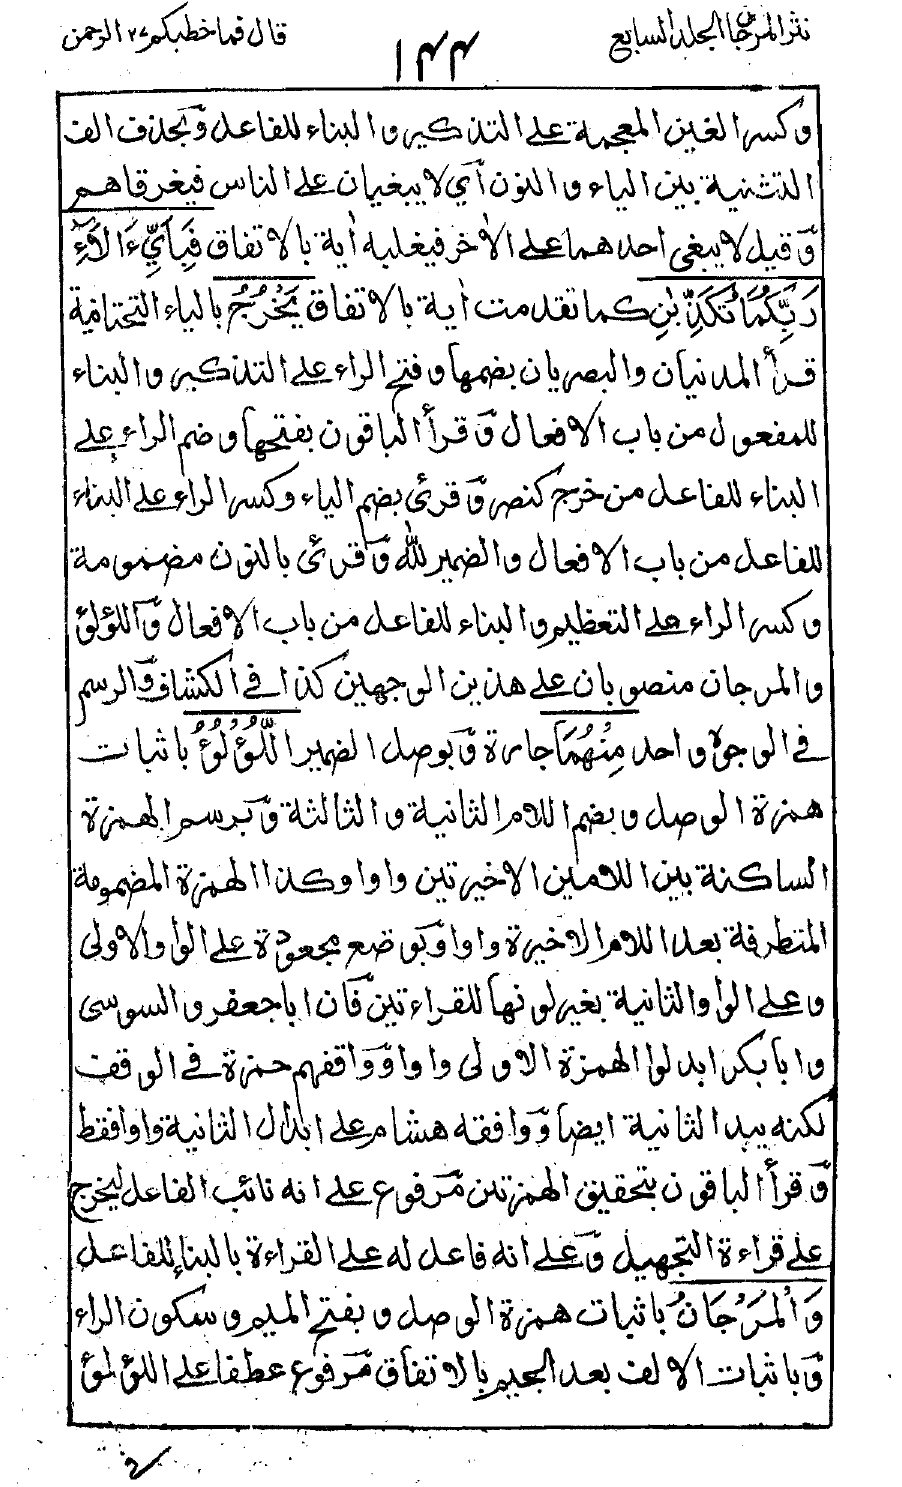 نثر المرجان المجلد السابع
١٤٤
قال فما خطبكم ٢٧ الرحمن
وكسر الغين المعجمة على التذكير والبناء للفاعل وبحذف الف
التثنية بين الياء والنون أي لا يبغيان على الناس فيغرقاهم
وقيل لا يبغي احدهما على الأخر فيغلبه أية بالاتفاق فَبِأَيِّ ءَالَآءِ
رَبِّكُمَا تُكَذِّبٰنِ كما تقدمت أية بالاتفاق يَخْرُجُ بالياء التحتانية
قرأ المدنيان والبصريان بضمها وفتح الراء على التذكير والبناء
للمفعول من باب الافعال وقرأ الباقون بفتحها وضم الراء على
البناء للفاعل من خرج كنصر وقرئ بضم الياء وكسر الراء على البناء
للفاعل من باب الافعال والضمير لله وقرئ بالنون مضمومة
وكسر الراء على التعظيم والبناء للفاعل من باب الافعال واللؤلؤ
والمرجان منصوبان على هذين الوجهين كذا في الكشاف والرسم
في الوجوه واحد مِنْهُمَا جارة وبوصل الضمير اللُّؤْلُؤُ باثبات
همزة الوصل وبضم اللام الثانية والثالثة وبرسم الهمزة
الساكنة بين اللامين الاخيرتين واوا وكذا الهمزة المضمومة
المتطرفة بعد اللام الاخيرة واوا وبوضع مجعودة على الواو الاولى
وعلى الواو الثانية بغير لونها للقراءتين فان اباجعفر والسوسى
وابابكر ابدلوا الهمزة الاولى واوا ووافقهم حمزة في الوقف
لكنه يبدل الثانية ايضا ووافقه هشام على ابدال الثانية واوا فقط
وقرأ الباقون بتحقيق الهمزتين مرفوع على انه نائب الفاعل ليخرج
على قراءة التجهيل وعلى انه فاعل له على القراءة بالبناء للفاعل
وَالْمَرْجَانُ باثبات همزة الوصل وبفتح الميم وسكون الراء
وباثبات الالف بعد الجيم بالاتفاق مرفوع عطفا على اللؤلؤ